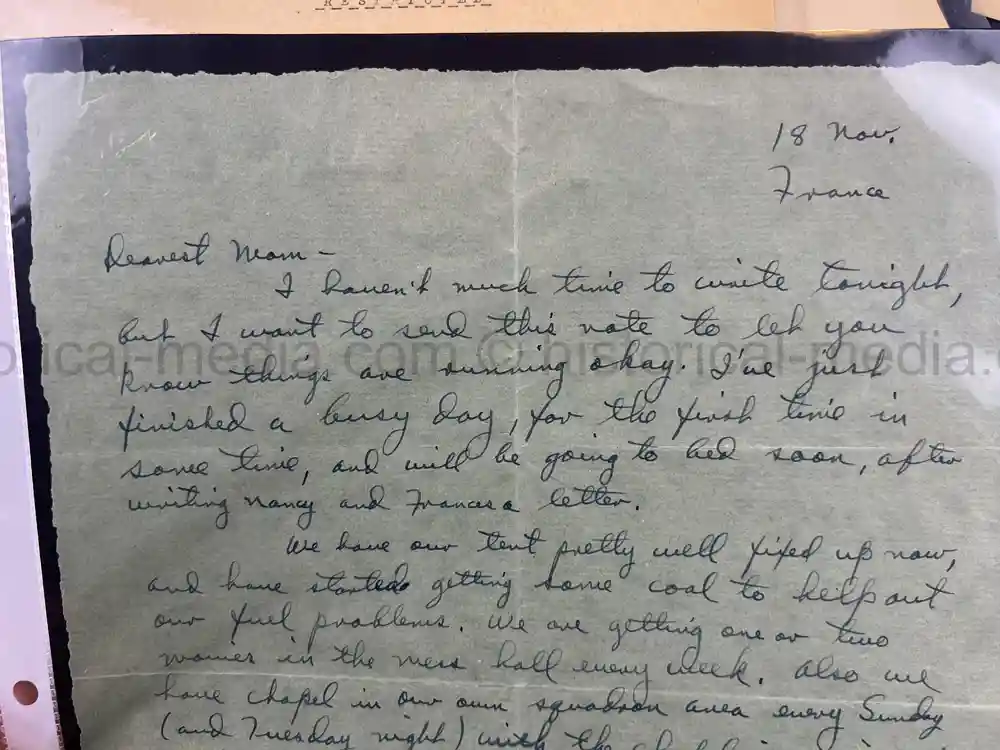 RESTRICTED
18 Nov.
France
Dearest Mom –
I haven't much time to write tonight,
but I want to send this note to let you
know things are running okay. I've just
finished a busy day, for the first time in
some time, and will be going to bed soon, after
writing Nancy and Frances a letter.
We have our tent pretty well fixed up now,
and have started getting some coal to help out
our fuel problems. We are getting one or two
movies in the mess hall every week. Also we
have chapel in our own squadron area every Sunday
(and Tuesday night) with the
orical-media.com © historical-media.